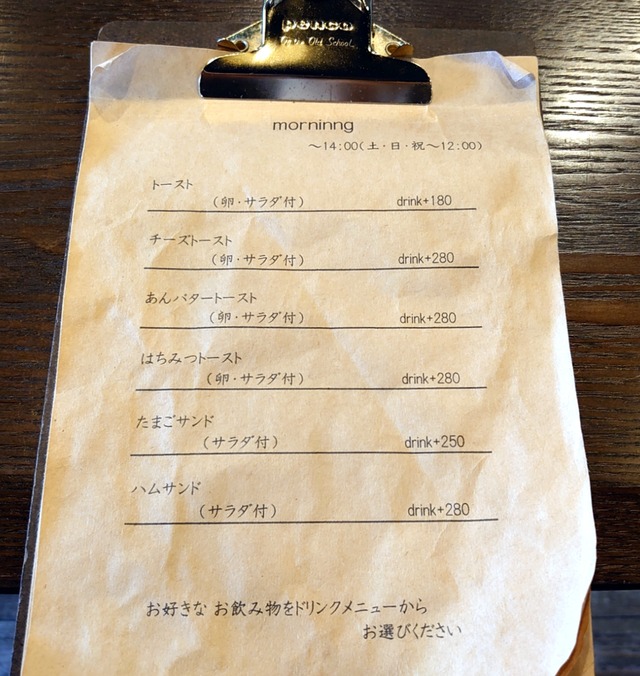 penco
morninng
～14:00(土・日・祝～12:00)
トースト
(卵・サラダ付) drink+180
チーズトースト
(卵・サラダ付) drink+280
あんバタートースト
(卵・サラダ付) drink+280
はちみつトースト
(卵・サラダ付) drink+280
たまごサンド
(サラダ付) drink+250
ハムサンド
(サラダ付) drink+280
お好きな お飲み物をドリンクメニューから
お選びください